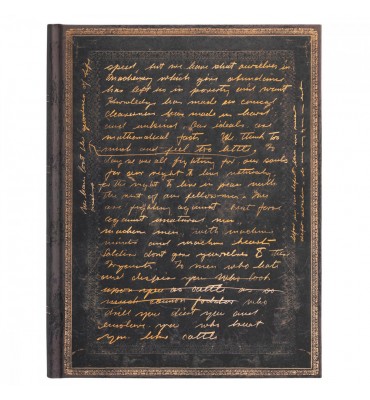 speed, but we have shut ourselves in
machinery which gives abundance
has left us in poverty and want
Knowledge has made us cynical
cleverness has made us hard
and unkind. Our ideals are
mathematical facts. We think too
much and feel too little. To
day we are all fighting for our souls
for our right to live naturally,
for the right to live in peace with
the rest of our fellowmen. We
are fighting against brut force
against unatural men.
machine men with machine
minds and machine hearts
Soldiers dont give yourselves to the
To men who hate
and despise you who look
upon you as cattle as
cannon fodder who
drill you diet you and
enslave you who treat
you like cattle
We have lost the of life